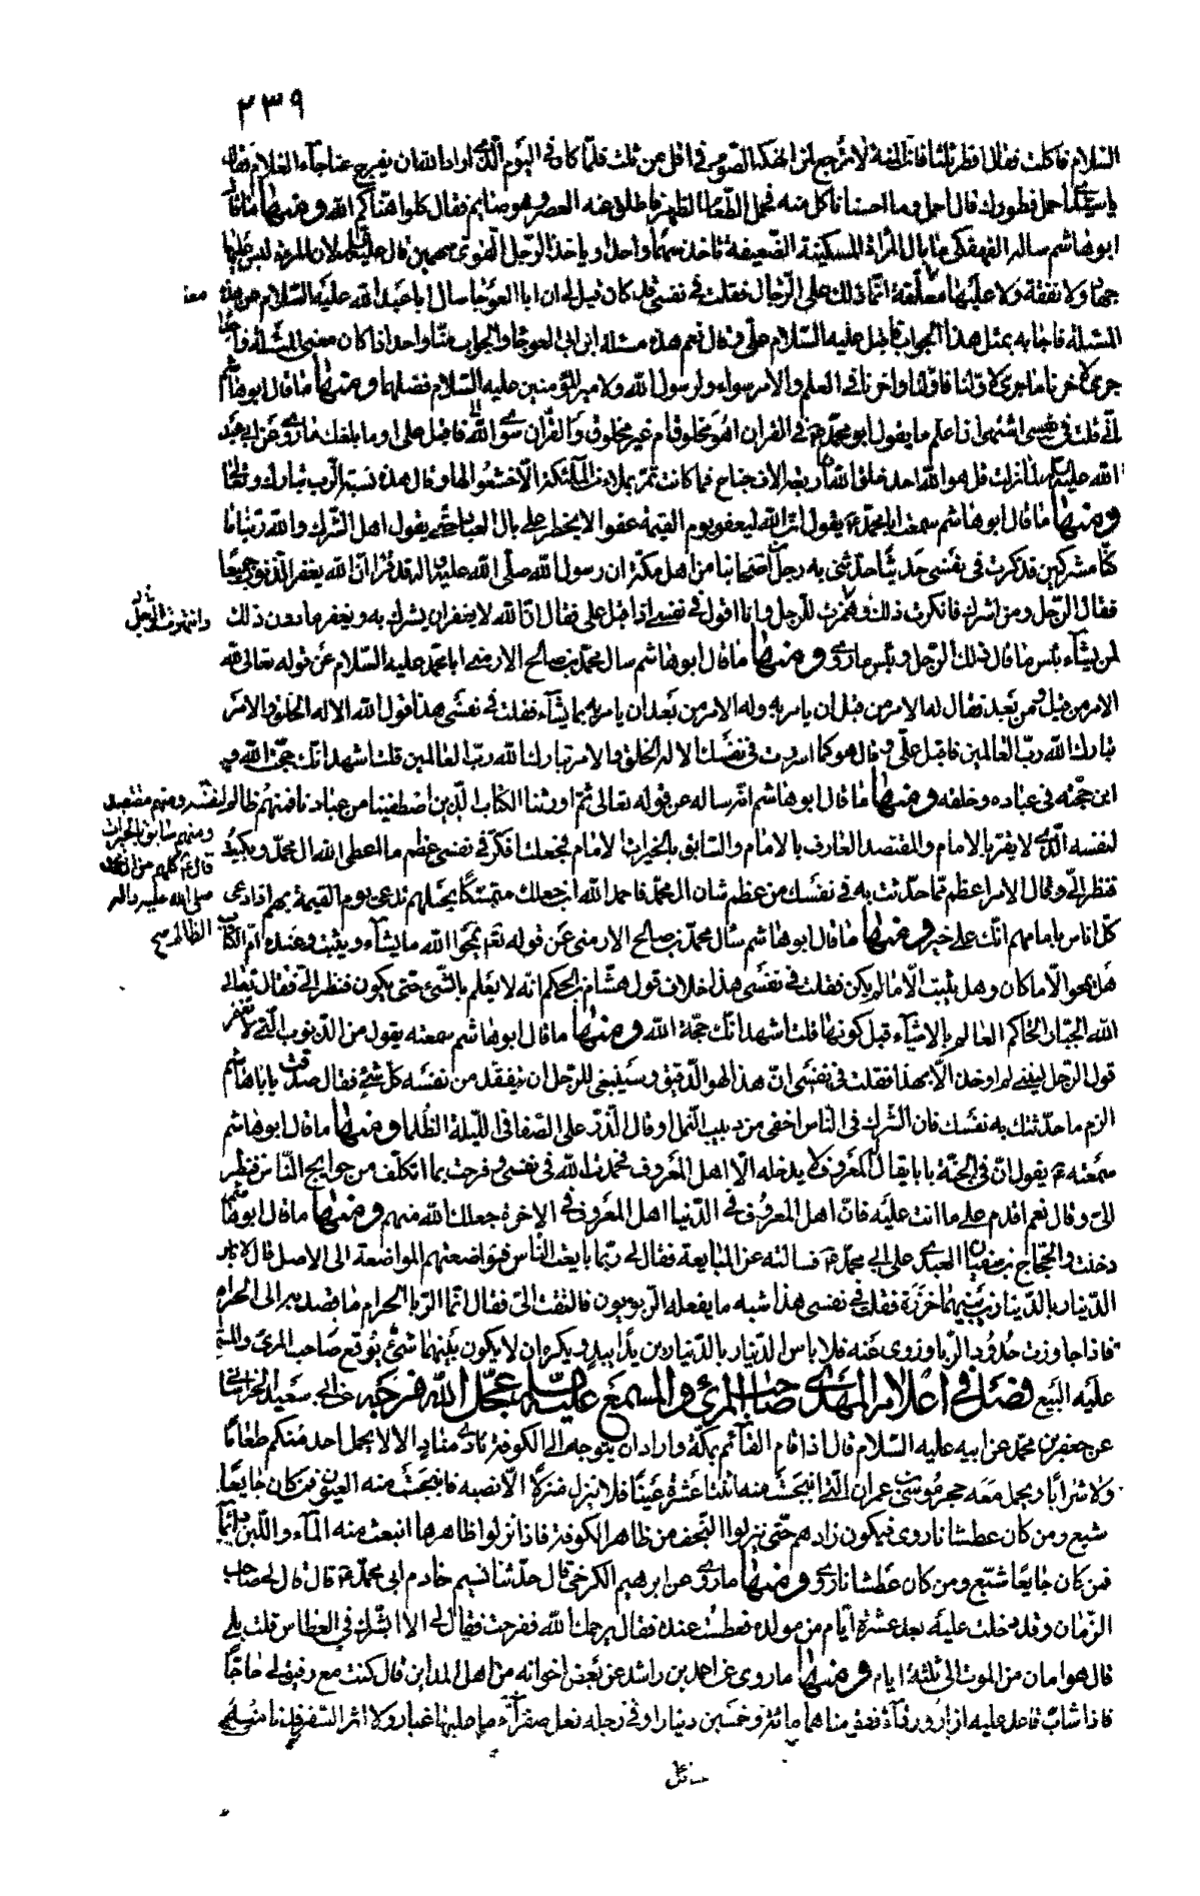 ٢٣٩
السلام فاكلت فقال افطر ثلثا فان المنة لا ترجع لمن انهكه الصوم في اقل من ثلث فلما كان في اليوم الذي اراد الله ان يفرج عنا جاءه الغلام فقال
يا سيدي احمل فطورك قال احمل وما احسبنا ناكل منه فحمل الطعام الظهر فاطلق عنه العصر وهو صايم فقال كلوا هناكم الله ومنها ما قال
ابو هاشم ساله الفهفكي ما بال المراة المسكينة الضعيفة تاخذ سهما واحدا وياخذ الرجل القوي سهمين قال لان المرءة ليس عليها
جهاد ولا نفقة ولا عليها معقلة انما ذلك على الرجال فقلت في نفسي قد كان قيل لي ان ابن ابي العوجا سال ابا عبد الله عليه السلام عن هذه
المسئلة فاجابه بمثل هذا الجواب فاقبل عليه السلام علي وقال نعم هذه مسئلة ابن ابي العوجا والجواب منا واحد اذا كان معنى المسئلة واحدا
جرى لاخرنا ما جرى لاولنا واولنا واخرنا في العلم والامر سواء ولرسول الله ولامير المؤمنين عليه السلام فضلهما ومنها ما قال ابو هاشم
اني قلت في نفسي اشتهي ان اعلم ما يقول ابو محمد ع في القران اهو مخلوق ام غير مخلوق والقران سوى الله فاقبل علي اوما بلغك ما روي عن ابي عبد
الله عليه السلم لما نزلت قل هو الله احد خلق الله اربعة الاف جناح فما كانت تمر بملاء من الملئكة الا خشعوا لها وقال هذه نسبة الرب تبارك وتعالى
ومنها ما قال ابو هاشم سمعت ابا محمد ع يقول ان الله ليعفو يوم القيمة عفوا لا يخطر على بال العباد حتى يقول اهل الشرك والله ربنا ما
كنا مشركين فذكرت في نفسي حديثا حدثني به رجل من اصحابنا من اهل مكة ان رسول الله صلى الله عليه واله قد قرا ان الله يغفر الذنوب جميعا
فقال الرجل ومن اشرك فانكرت ذلك وانتهرت الرجل وانا اقول في نفسي اذا قبل علي فقال ان الله لا يغفر ان يشرك به ويغفر ما دون ذلك
لمن يشاء بئس ما قال ذلك الرجل وبئس ما روى ومنها ما قال ابو هاشم سال محمد بن صالح الارمني ابا محمد عليه السلام عن قوله تعالى لله
الامر من قبل ومن بعد فقال له الامر من قبل ان يامر به وله الامر من بعد ان يامر به بما يشاء فقلت في نفسي هذا قول الله الا له الخلق والامر
تبارك الله رب العالمين فاقبل علي وقال هو كما اسررت في نفسك الا له الخلق والامر تبارك الله رب العالمين قلت اشهد انك حجة الله و
ابن حجته في عباده وخلقه ومنها ما قال ابو هاشم انه ساله عن قوله تعالى ثم اورثنا الكتاب الذين اصطفينا من عبادنا فمنهم ظالم لنفسه ومنهم مقتصد
ومنهم سابق بالخيرات
قال ع كلهم من ال محمد
صلى الله عليه واله
الظالم صح
لنفسه الذي لا يقر بالامام والمقتصد العارف بالامام والسابق بالخيرات الامام فجعلت افكر في نفسي عظم ما اعطى الله ال محمد وبكيت
فنظر الي وقال الامر اعظم مما حدثت به في نفسك من عظم شان ال محمد فاحمد الله ان جعلك متمسكا بحبلهم تدعى يوم القيمة بهم اذا دعي
كل اناس بامامهم انك على خير ومنها ما قال ابو هاشم سال محمد بن صالح الارمني عن قوله تع يمحوا الله ما يشاء ويثبت وعنده ام الكتاب
هل يمحو الا ما كان وهل يثبت الا ما لم يكن فقلت في نفسي هذا خلاف قول هشام بن الحكم انه لا يعلم بالشيء حتى يكون فنظر الي فقال تعالى
الله الجبار الحاكم العالم بالاشياء قبل كونها قلت اشهد انك حجة الله ومنها ما قال ابو هاشم سمعته يقول من الذنوب التي لا تغفر
قول الرجل ليتني لم اواخذ الا بهذا فقلت في نفسي ان هذا لهو الدقيق وسينبغي للرجل ان يتفقد من نفسه كل شئ فقال صدقت يا ابا هاشم
الزم ما حدثتك به نفسك فان الشرك في الناس اخفى من دبيب النمل او قال الذر على الصفا في الليلة الظلماء ومنها ما قال ابو هاشم
سمعته ع يقول ان في الجنة بابا يقال المعروف لا يدخله الا اهل المعروف فحمدت الله في نفسي وفرحت بما اتكلف من حوايج الناس فنظر
الي وقال نعم اقدم على ما انت عليه فان اهل المعروف في الدنيا اهل المعروف في الاخرة جعلك الله منهم ومنها ما قال ابو هاشم
دخلت والحجاج بن سفيان العبدي على ابي محمد ع فسالته عن المبايعة فقال لي ربما بايعت الناس فتواضعتهم المواضعة الى الاصل قال لا باس
الدينار بالدينارين بينهما خرزة فقلت في نفسي هذا شبه ما يفعله الربويون فالتفت الي فقال انما الربا الحرام ما قصد به الى الحرام
فاذا جاوزت حدود الربا وزوى عنه فلا باس الدينار بالدينارين يدا بيد ويكره ان لا يكون بينهما شئ يوقع صاحب المرئ والمسمع
عليه البيع فصل في اعلام المهدي صاحب المرئ والمسمع عليه السلم عجل الله فرجه عن ابي سعيد الخراساني
عن جعفر بن محمد عن ابيه عليه السلام قال اذا قام القائم بمكة واراد ان يتوجه الى الكوفة نادى مناد الا لا يحمل احد منكم طعاما
ولا شرابا ويحمل معه حجر موسى بن عمران التي انبجست منه اثنتا عشرة عينا فلا ينزل منزلا الا نصبه فانبجست منه العيون فمن كان جايعا
شبع ومن كان عطشانا روى فيكون زادهم حتى ينزلوا النجف من ظاهر الكوفة فاذا نزلوا ظاهرها انبعث منه الماء واللبن دائما
فمن كان جايعا شبع ومن كان عطشانا روي ومنها ما روي عن ابرهيم الكرخي قال حدثنا نسيم خادم ابي محمد ع قال قال لي صاحب
الزمان وقد دخلت عليه بعد عشرة ايام من مولده فعطست عنده فقال يرحمك الله ففرحت فقال لي الا ابشرك في العطاس قلت بلى
قال هو امان من الموت الى ثلثة ايام ومنها ما روي عن احمد بن راشد عن بعض اخوانه من اهل المداين قال كنت مع رفيق لي حاجا
فاذا شاب قاعد عليه ازار ورداء فقومناهما مائة وخمسين دينارا وفي رجله نعل صفراء ما عليها غبار ولا اثر السفر فدنا منه